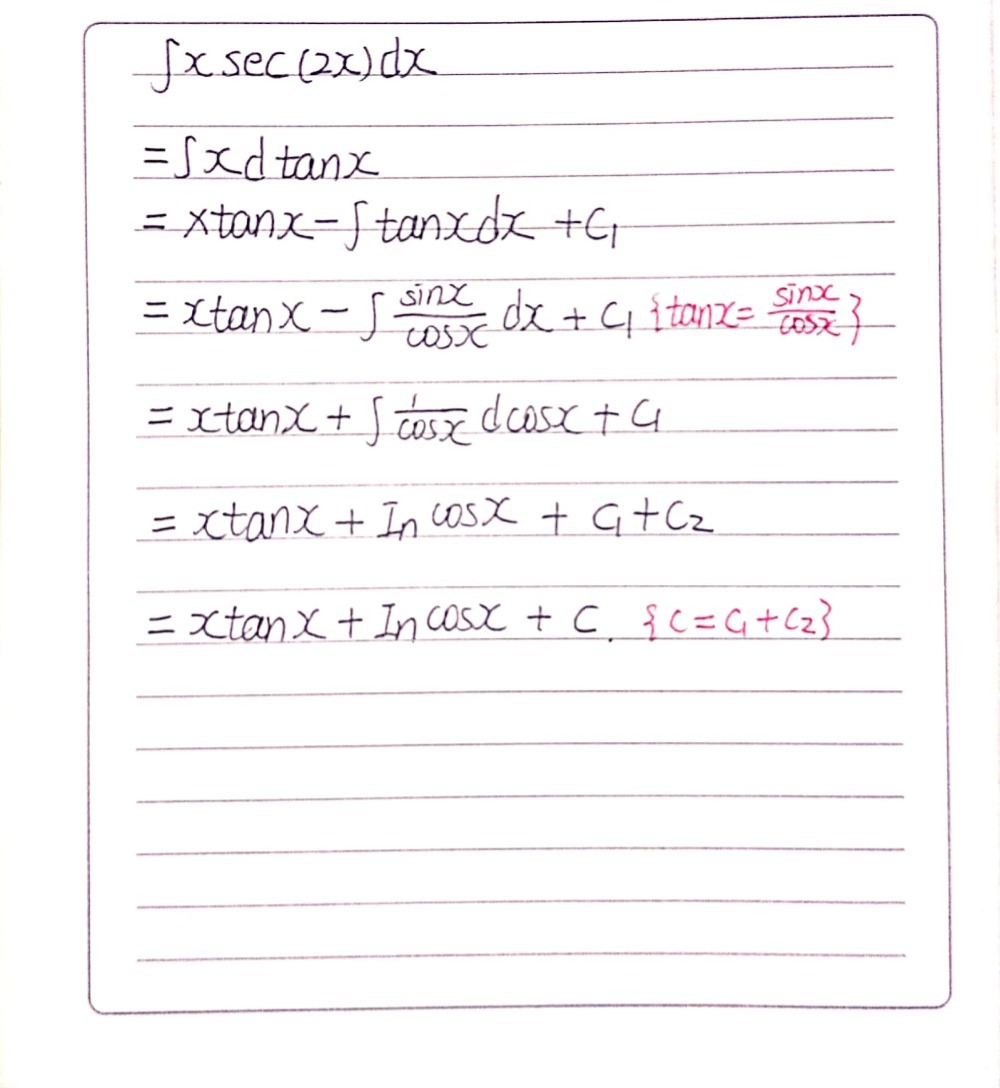 ∫x sec(2x)dx
=∫xd tanx
= xtanx-∫tanxdx +C₁
= xtanx - ∫ sinx/cosx dx + C₁ {tanx= sinx/cosx}
= xtanx + ∫ 1/cosx dcosx + C₁
= xtanx + In cosx + C₁+C₂
= xtanx + In cosx + C. {C=C₁+C₂}